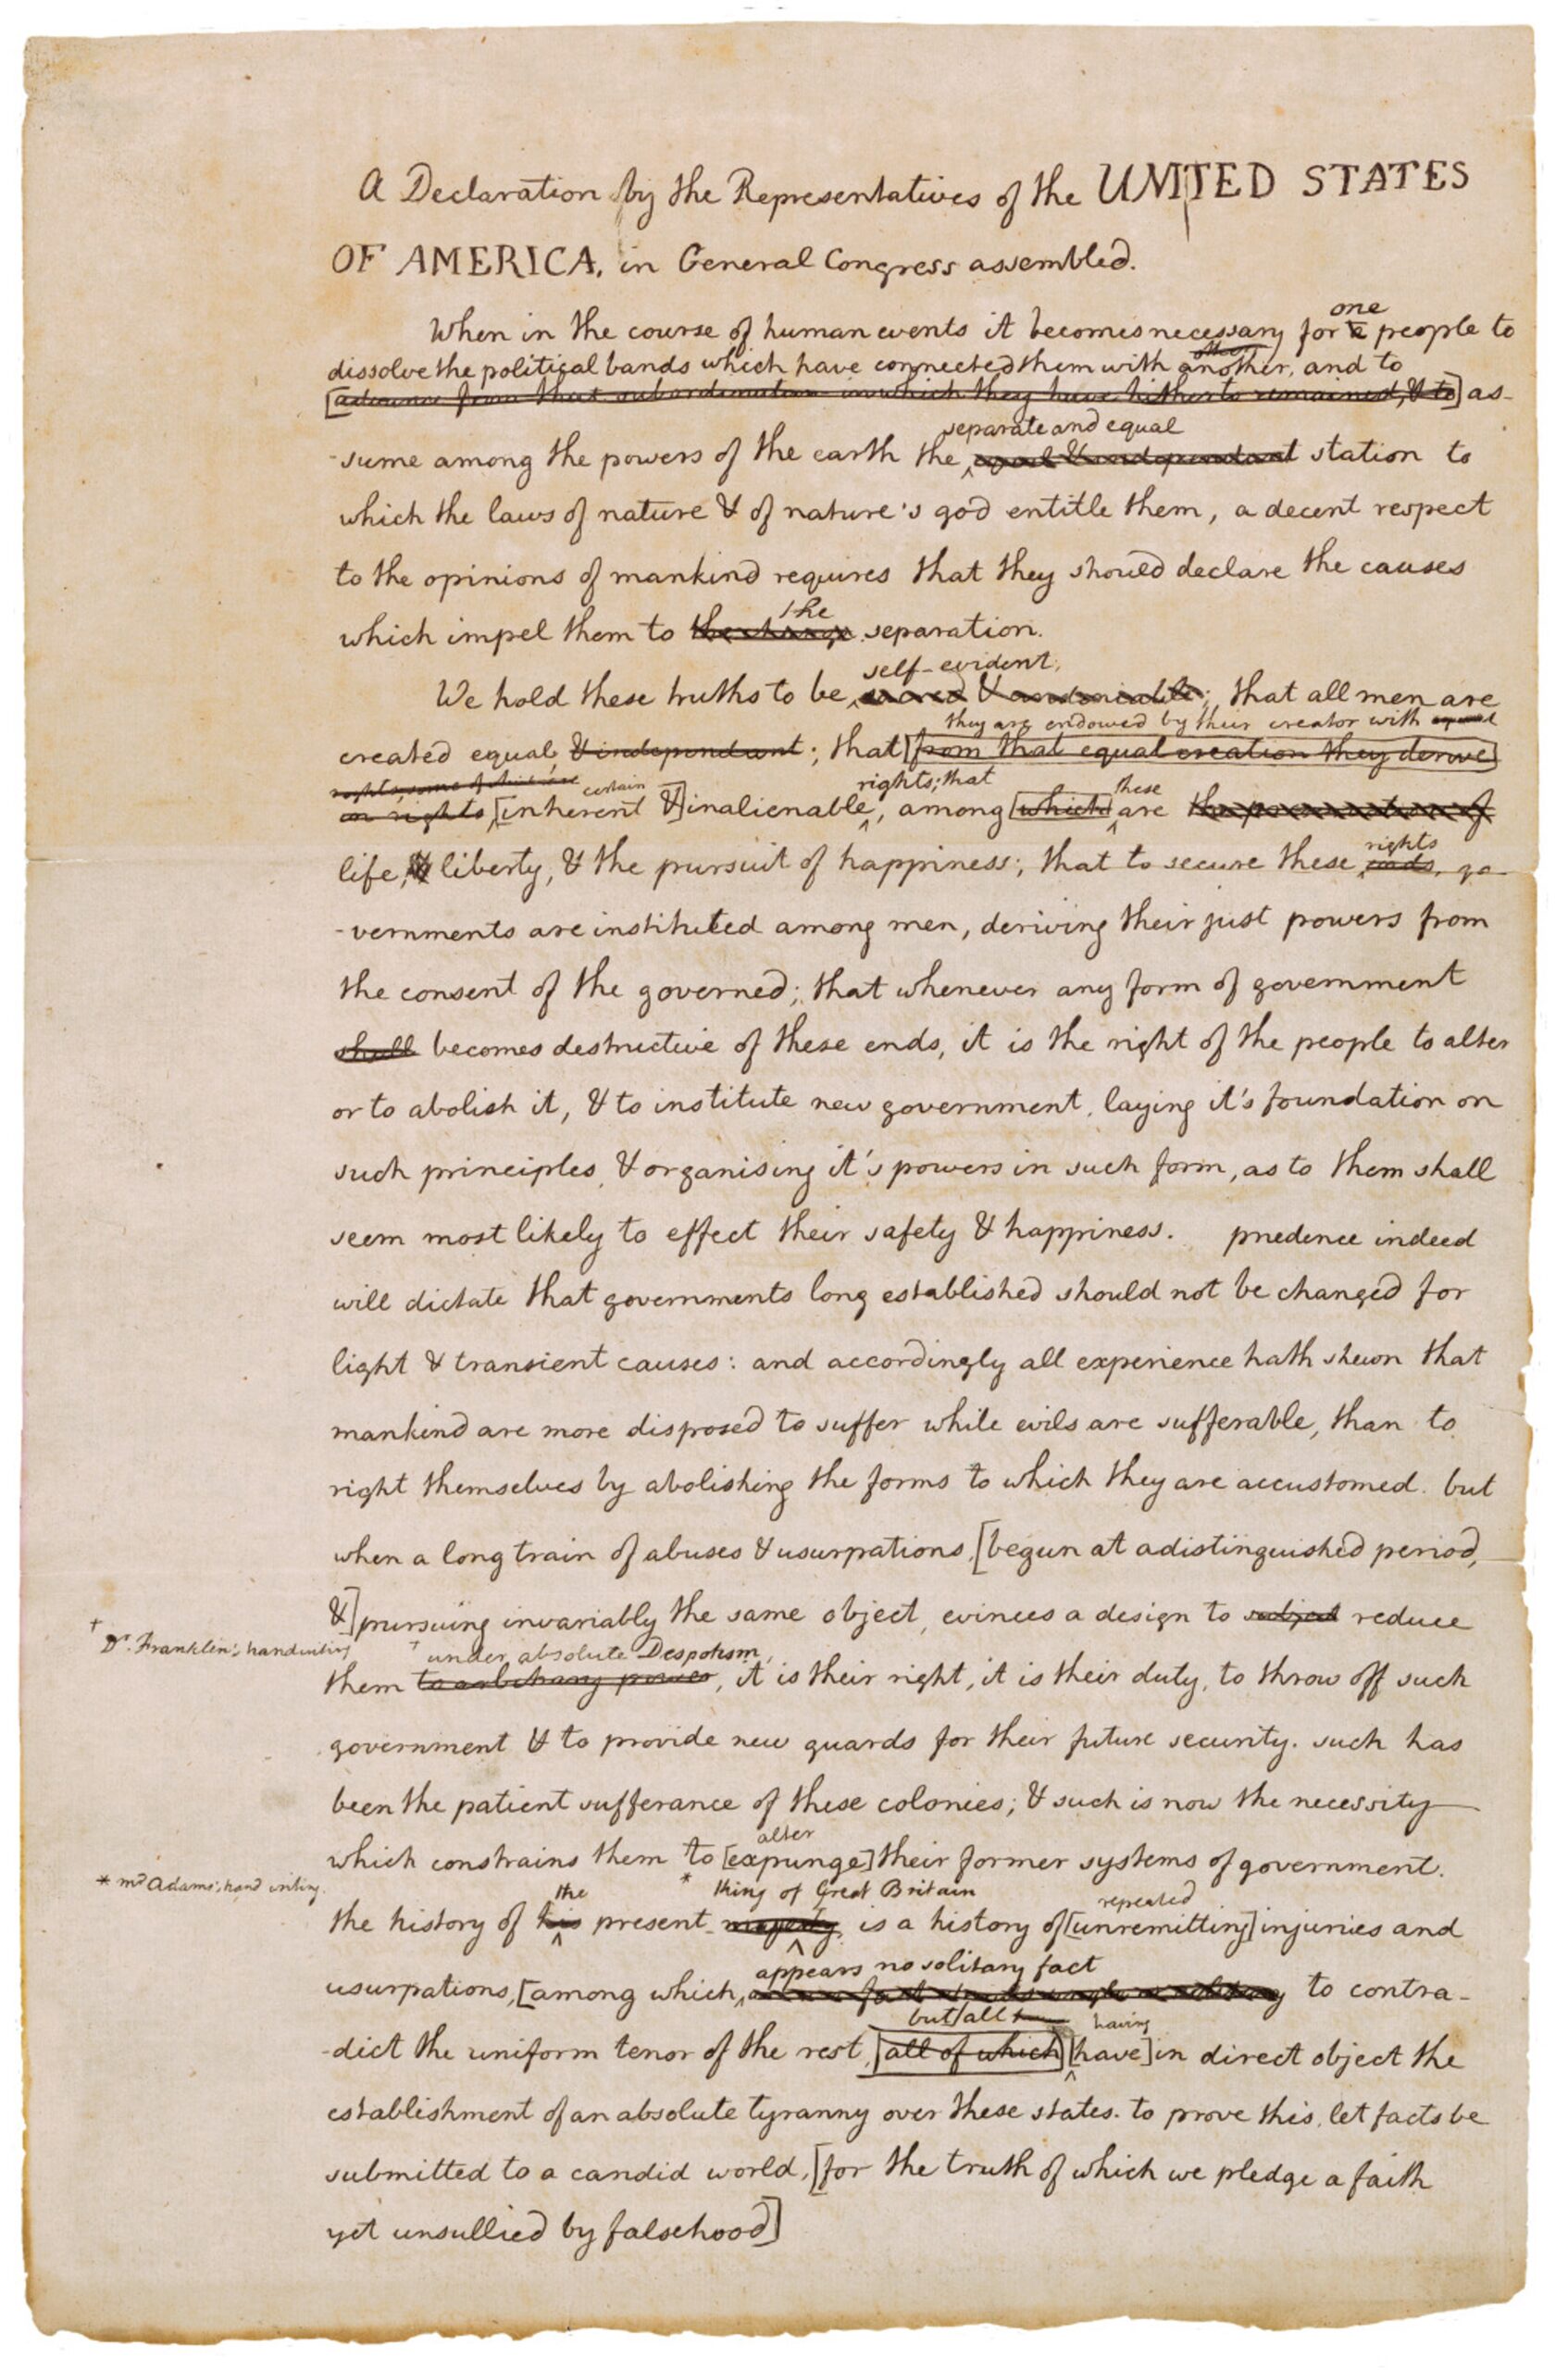 A Declaration by the Representatives of the UNITED STATES
OF AMERICA, in General Congress assembled.
one
When in the course of human events it becomes necessary for a people to
other
dissolve the political bands which have connected them with another, and to
[advance from that subordination in which they have hitherto remained, & to] as-
separate and equal
-sume among the powers of the earth the equal & independant station to
which the laws of nature & of nature's god entitle them, a decent respect
to the opinions of mankind requires that they should declare the causes
the
which impel them to the change separation.
self-evident,
We hold these truths to be sacred & undeniable; that all men are
they are endowed by their creator with equal
created equal & independant; that [from that equal creation they derive]
rights, some of which are certain rights; that these
in rights [inherent &] inalienable, among [which] are the preservation of
rights
life, & liberty, & the pursuit of happiness; that to secure these ends, go-
-vernments are instituted among men, deriving their just powers from
the consent of the governed; that whenever any form of government
shall becomes destructive of these ends, it is the right of the people to alter
or to abolish it, & to institute new government, laying it's foundation on
such principles & organising it's powers in such form, as to them shall
seem most likely to effect their safety & happiness. prudence indeed
will dictate that governments long established should not be changed for
light & transient causes: and accordingly all experience hath shewn that
mankind are more disposed to suffer while evils are sufferable, than to
right themselves by abolishing the forms to which they are accustomed. but
when a long train of abuses & usurpations, [begun at a distinguished period,
&] pursuing invariably the same object, evinces a design to subject reduce
† Dr. Franklin's handwriting † under absolute Despotism,
them to arbitrary power, it is their right, it is their duty, to throw off such
government & to provide new guards for their future security. such has
been the patient sufferance of these colonies; & such is now the necessity
alter
which constrains them to [expunge] their former systems of government.
* mr Adams' hand writing. the * king of Great Britain repeated
the history of his present majesty is a history of [unremitting] injuries and
appears no solitary fact
usurpations, [among which, fact stands single or solitary to contra-
but all having
-dict the uniform tenor of the rest, [all of which] [have] in direct object the
establishment of an absolute tyranny over these states. to prove this, let facts be
submitted to a candid world, [for the truth of which we pledge a faith
yet unsullied by falsehood]